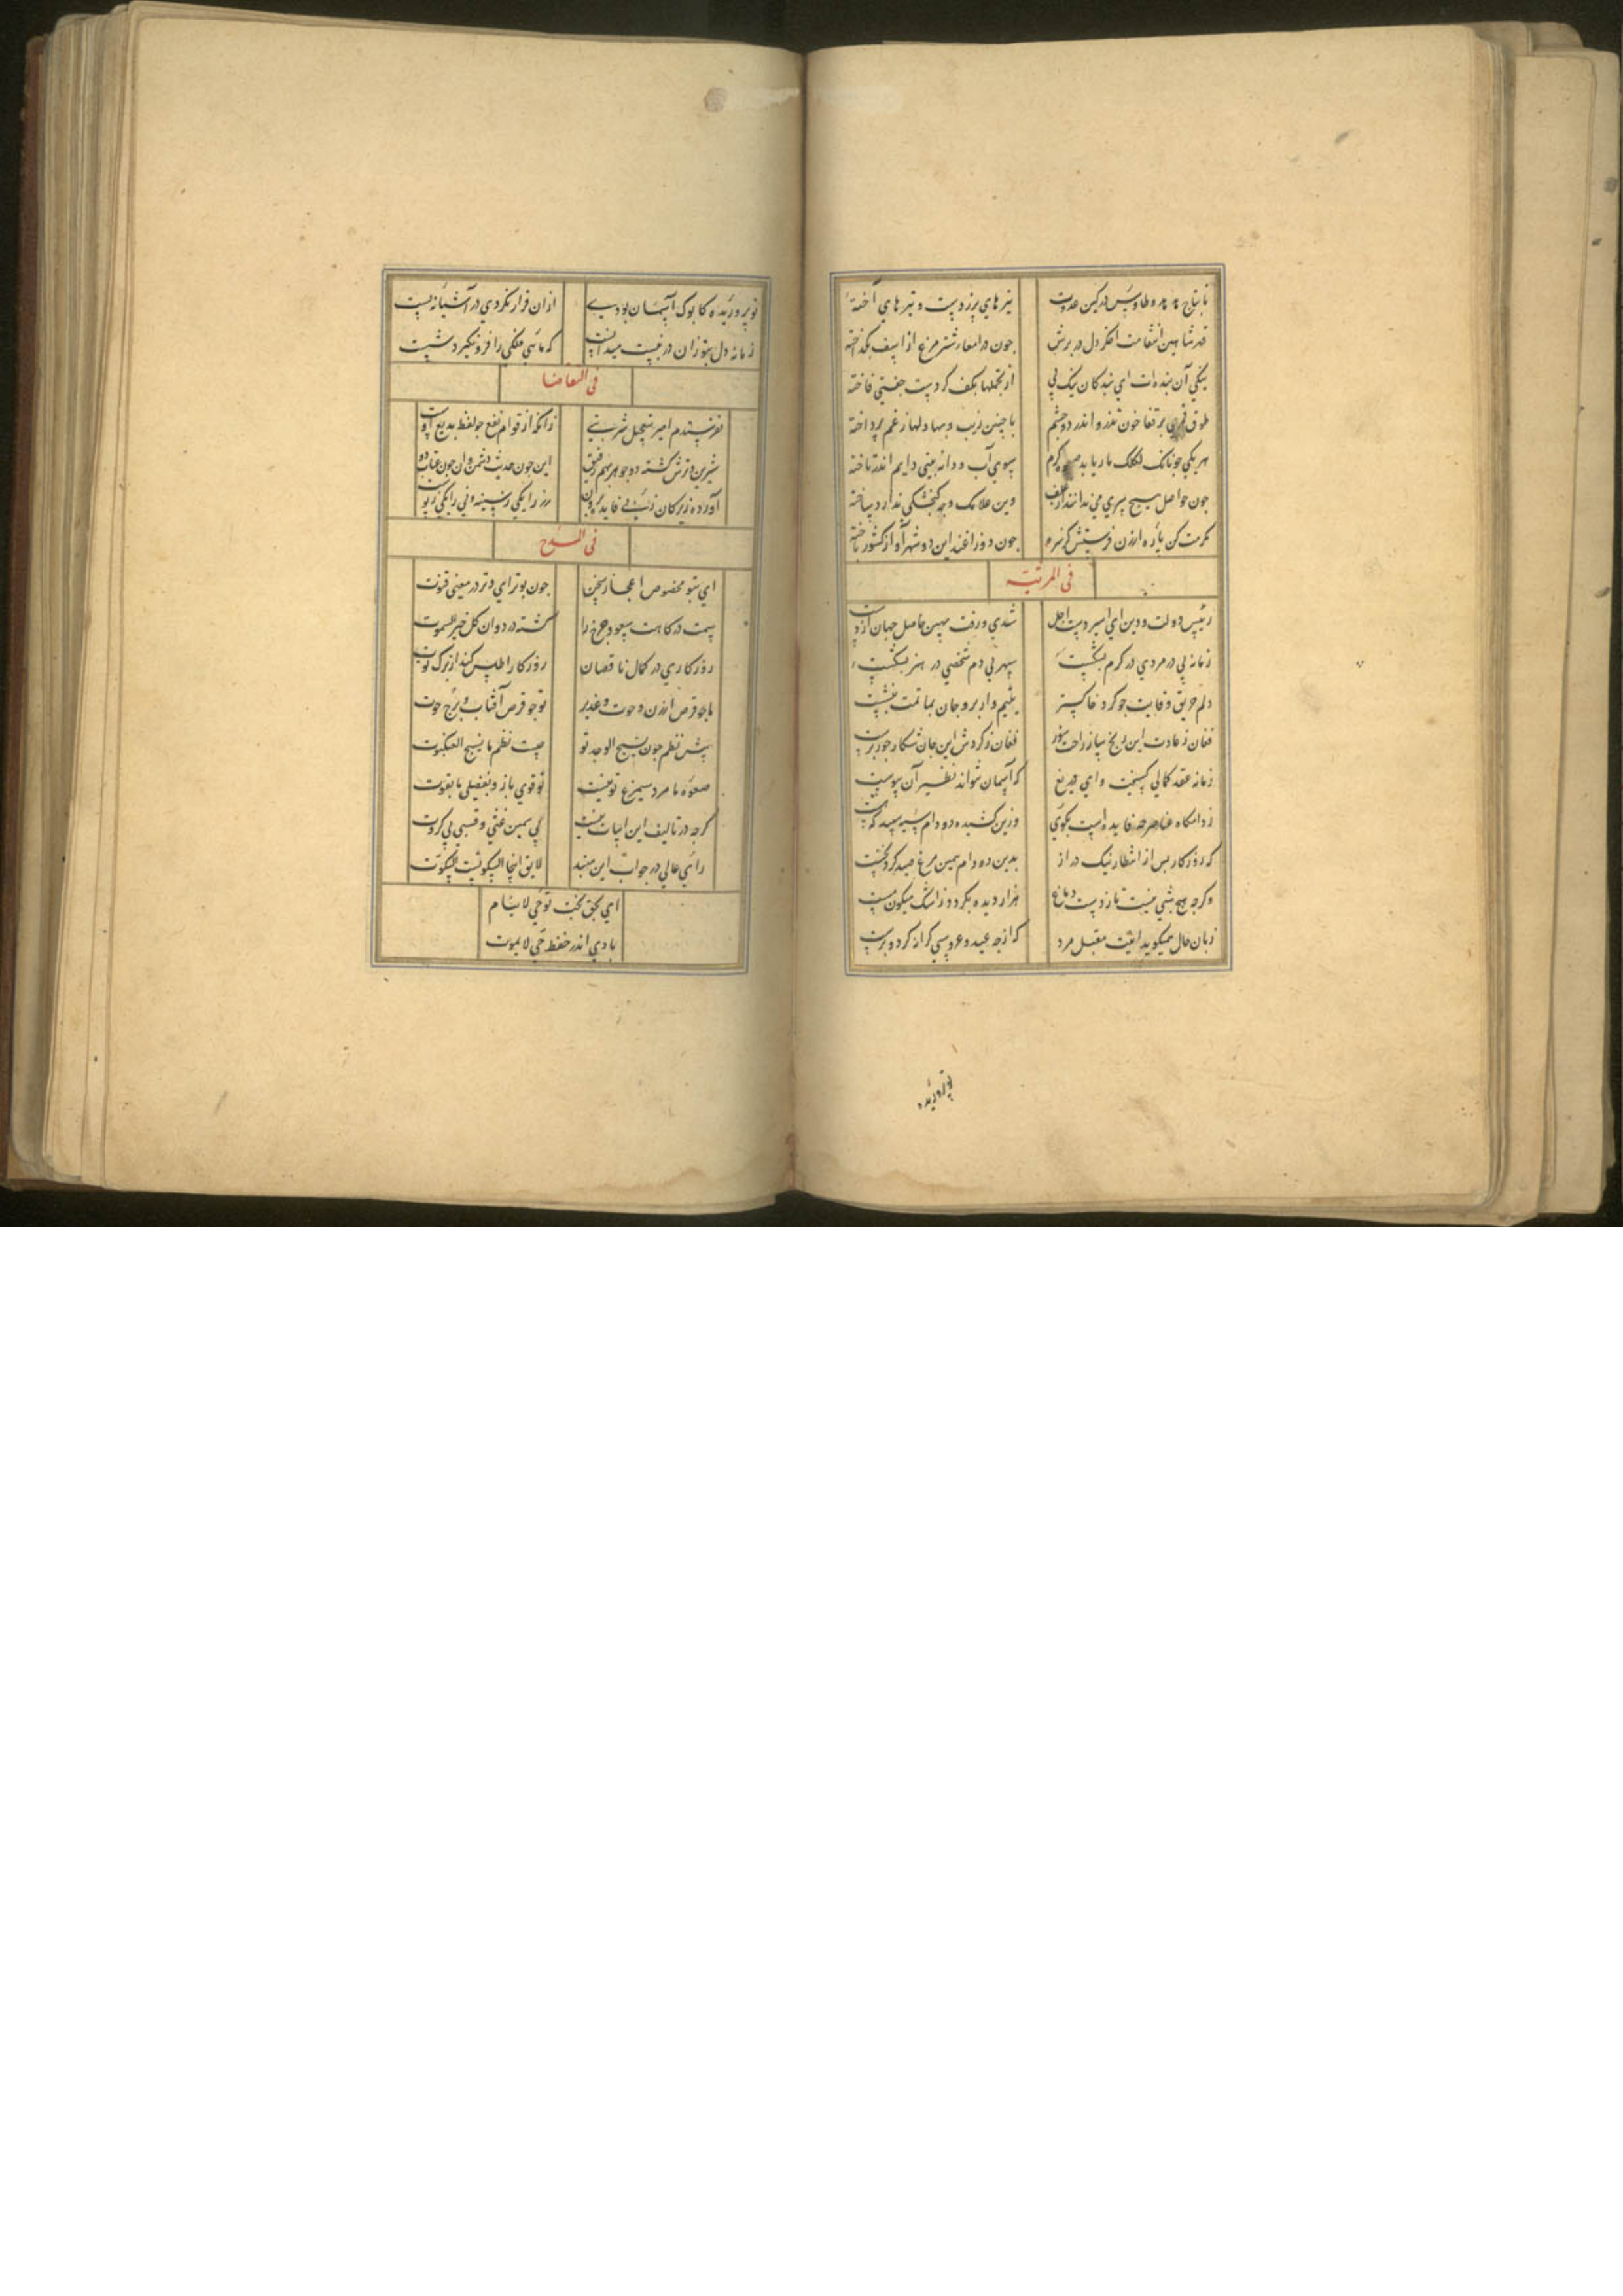 تا بتاج هدهد و طاوس در کین عدوت تیرهای پرزدست و تیرهای آخته
قدر شاهین انتقامت افکر دل در برش جون در امعار شترمرغ از اسف بگداخته
نیکی آن بنده ات ای بندگان نیک پی از تجملها بکف کردست جفتی فاخته
طوق قمری بر قفا خون تذرو اندر دو چشم با جنین زیب و بها دلها ز غم پرداخته
هر یکی جونانک لکلک مار یابد کرم بسوی آب و دانه بینی دایم اندر تاخته
جون حواصل هیچ سیری می ندانند از علف وین علامک وجه کنجشکی ندارد ساخته
مکرمت کن پاره ارزن فرستش کرنه جون دو زاغند این دو شهر آواز کشور باخته
فی المرثیه
رئیس دولت و دین ای اسیر دست اجل شدی و رفت بهین حاصل جهان از دست
زمانه پی در مردی در کرم بشکست سپهر بی دم شخصی در هنر بشکست
دلم حریق وفایت جو کرد خاکستر یتیم وار برو جان بماتمت بنشست
فغان ز عادت این رنج ساز راحت سوز فغان ز کردش این جان شکار جور پرست
زمانه عقد کمالی کسیخت وای دریغ که آسمان نتواند نظیر آن پیوست
ز دامگاه عناصر جه فایده است بگوی وزین کشیده دو دام سیه سپید که هست
که روزگار بس از انتظار نیک دراز بدین ده دام همین مرغ صید کرد نخست
وکرجه هیچ شبی نیست تا ز دست دماغ هزار دیده بکردد ز اشک میکون مست
زبان حال همیکوید اینت مقبل مرد که از جه عید و عروسی کرانه کرد و برست
تو پروریده
تو پروریده کابوک آسمان بودی ازان قرار نکردی در آشیانه پست
زمانه دل بتو زان در نبست میدانست که ماهی فلکی را فرو نگیرد شست
فی التقاضا
نفرستدم امیر بتعجیل شربتی زانکه از قوام نفع جو لفظ بدیع اوست
شیرین و ترش کشته دو جوهر بهم رفیق این جون حدیث دشمن و ان جون عتاب دوست
فی المدح
ای بتو مخصوص اعجاز سخن جون بوتر ای وتر در معنی قنوت
سمت درکاهت سعود جرخ را کشته در دوران کل خیر السموت
روزکاری در کمال ناقصان روزکار اطلس کند از برک توت
ما جو قرص ارزن و حوت و غدیر تو جو قرص آفتاب و برج حوت
پیش نظم جون نسیج الوحد تو جیست نظم ما نسیج العنکبوت
صعوه ما مرد سیمرغ تو نیست تو قوی بازو بفضلی ما بقوت
کرجه در تالیف این ابیات نیست بی سمین غثی و قسبی بی کروت
رای عالی در جواب این مبند لایق اینجا السکوتست السکوت
ای بحق بخت تو حی لاینام
بادی اندر حفظ حی لایموت